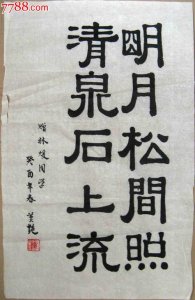 7788.com
明月松間照
清泉石上流
贈林俊同学
癸酉年春